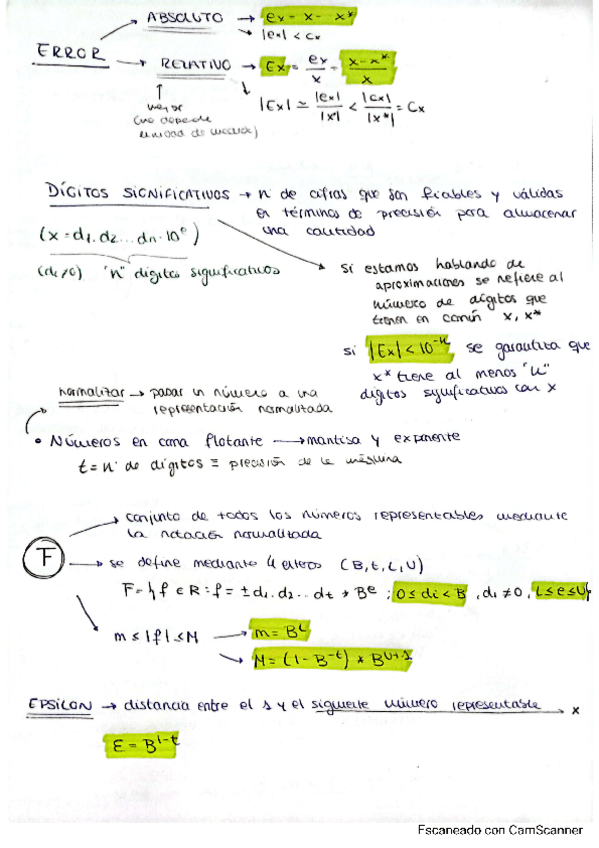 ERROR
ABSOLUTO → ex = x - x*
→ |ex| < cx
RELATIVO → Ex = ex/x = x-x*/x
|Ex| ≃ |ex|/|x| < |cx|/|x*| = Cx
mejor
(no depende
unidad de medida)
DÍGITOS SIGNIFICATIVOS → nº de cifras que son fiables y válidas
en términos de precisión para almacenar
una cantidad
(x = d1.d2...dn·10^e)
(d1≠0) "n" dígitos significativos
si estamos hablando de
aproximaciones se refiere al
número de dígitos que
tienen en común x, x*
si |Ex| < 10^-n se garantiza que
x* tiene al menos "n"
dígitos significativos con x
normalizar → pasar un número a una
representación normalizada
• Números en coma flotante → mantisa y exponente
t = nº de dígitos ≡ precisión de la máquina
F
conjunto de todos los números representables mediante
la notación normalizada
→ se define mediante 4 enteros (B, t, L, U)
F = {f ∈ R : f = ± d1.d2...dt * B^e ; 0 ≤ di < B, d1 ≠ 0, L ≤ e ≤ U}
m ≤ |f| ≤ M → m = B^L
→ M = (1 - B^-t) * B^U+1
EPSILON → distancia entre el 1 y el siguiente número representable x
E = B^1-t
Escaneado con CamScanner